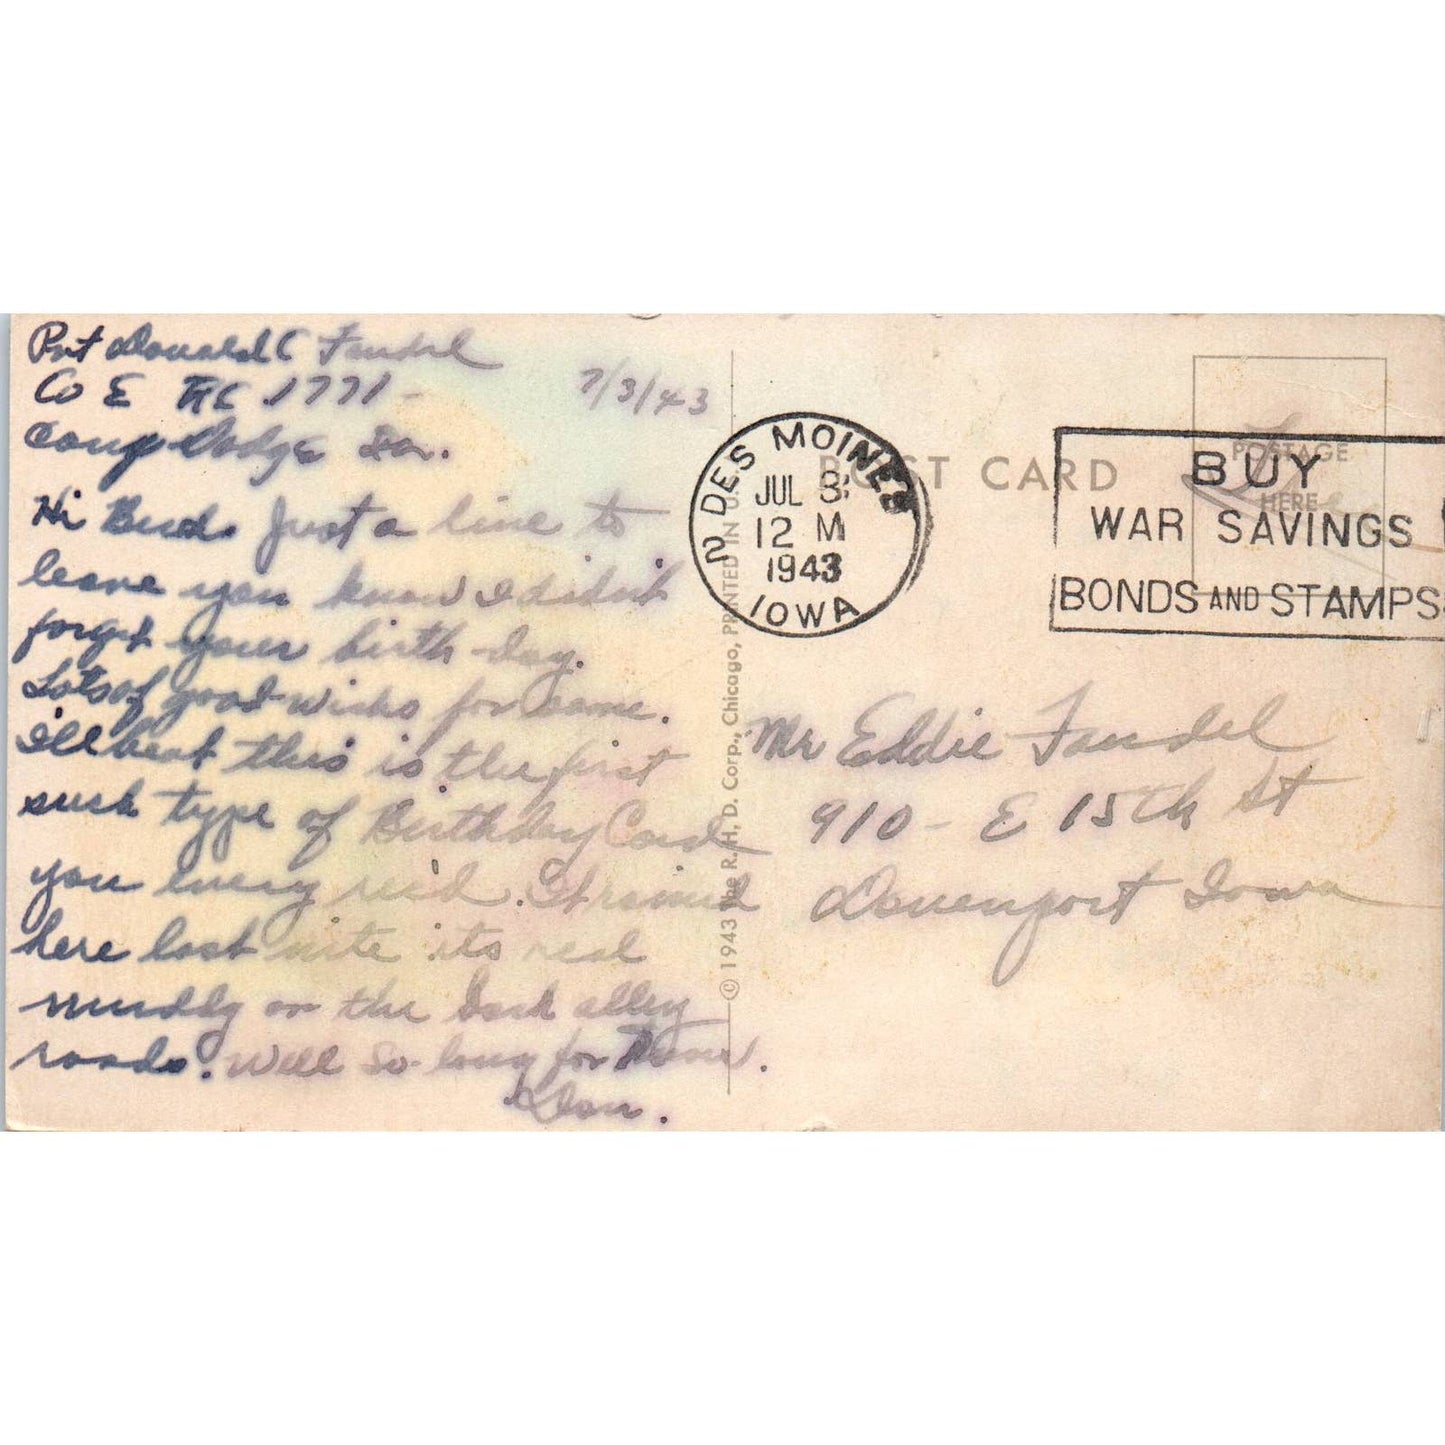 Pvt Donald C Fandel
Co E 1771
7/3/43
Camp Dodge Ia.
Hi Bud. Just a line to
leave you know I didn't
forget your birth day.
Lots of good wishs for same.
I'll beat this is the first
such type of Birthday Card
you every rec'd. It rained
here last nite its real
muddy on the back alley
roads. Well so-long for Now.
Don.
© 1943 The R. H. D. Corp., Chicago, PRINTED IN U.S.
2 DES MOINES
JUL 3
12 M
1943
IOWA
POST CARD
POSTAGE
HERE
BUY
WAR SAVINGS
BONDS AND STAMPS
Mr Eddie Fandel
910 - E 15th St
Davenport Iowa